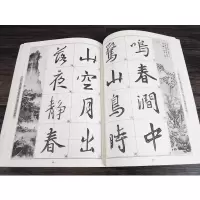 落夜靜春
山空月出
驚山鳥時
鳴春澗中